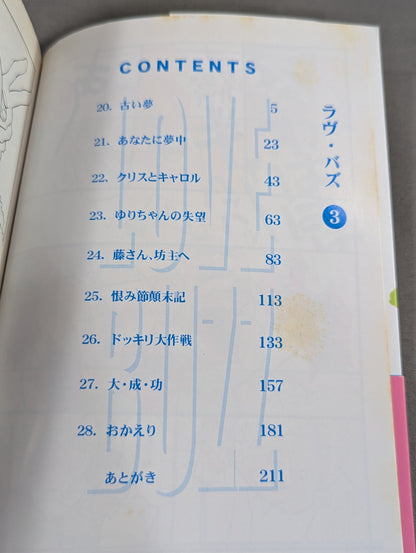 CONTENTS
ラヴ・バズ 3
20. 古い夢 5
21. あなたに夢中 23
22. クリスとキャロル 43
23. ゆりちゃんの失望 63
24. 藤さん、坊主へ 83
25. 恨み節顛末記 113
26. ドッキリ大作戦 133
27. 大・成・功 157
28. おかえり 181
あとがき 211
LOVE
BUZZ